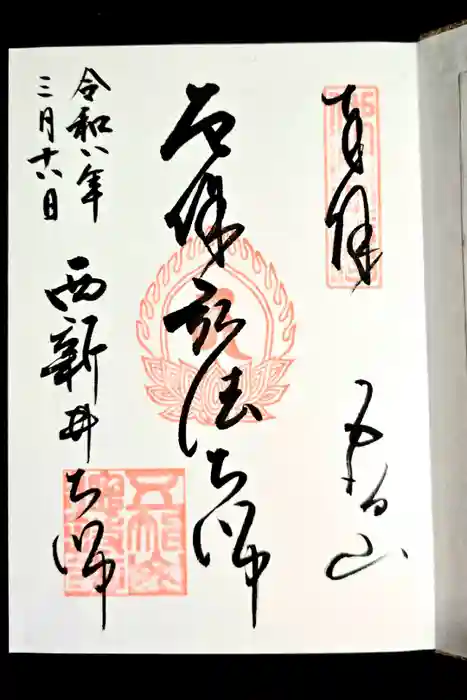 奉拝
五智山
厄除弘法大師
令和八年
三月十六日
西新井大師